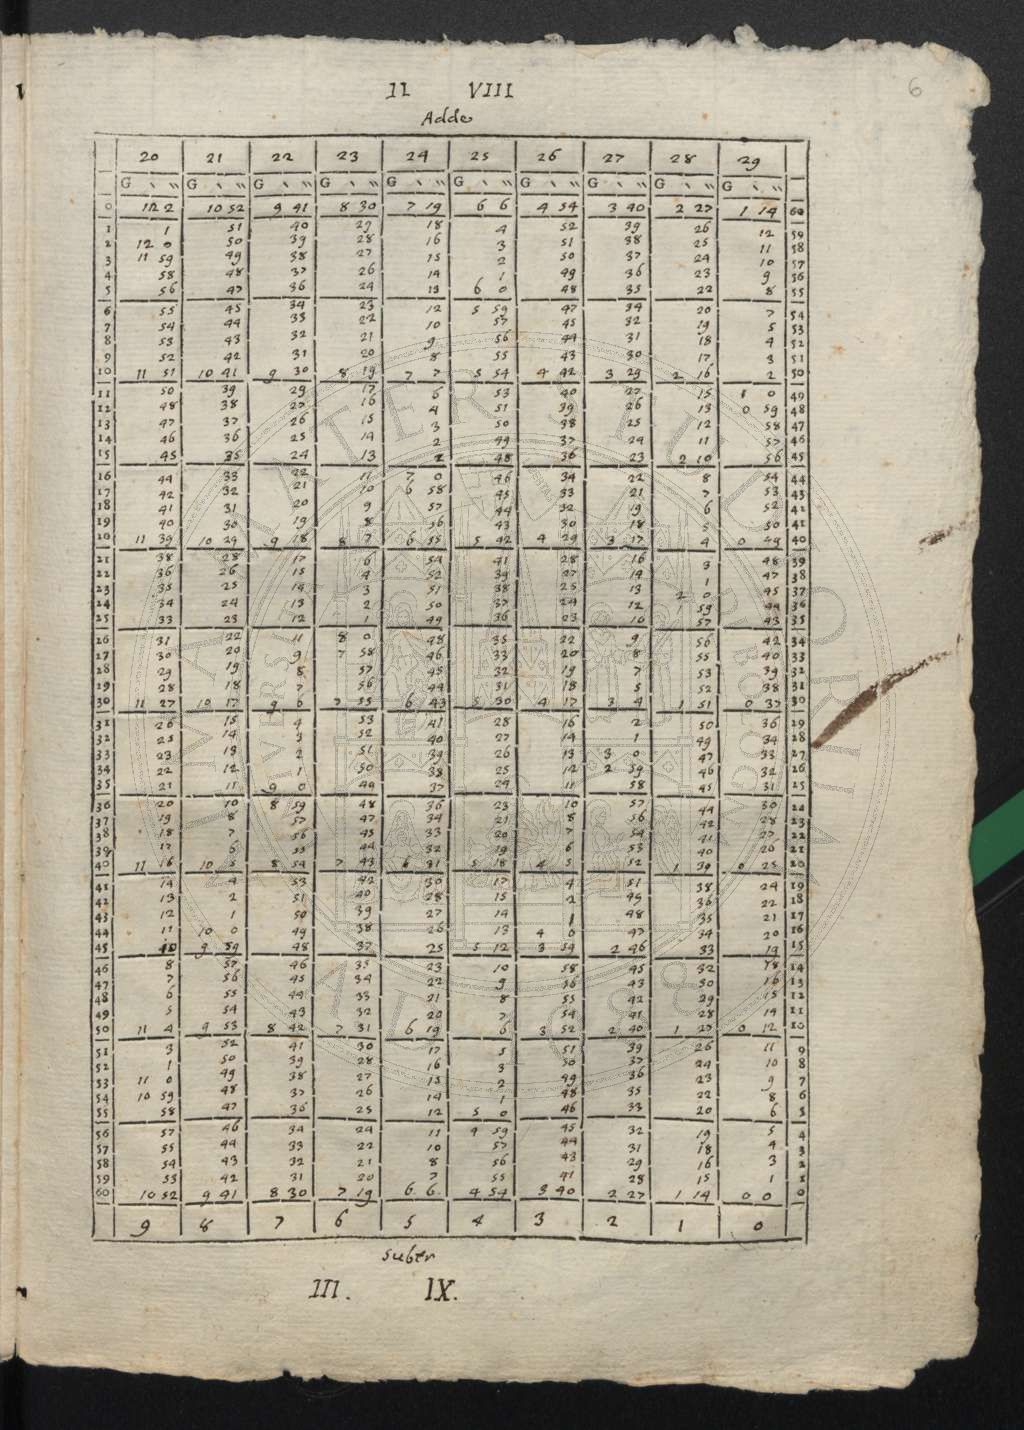 II VIII
6
Adde
20 21 22 23 24 25 26 27 28 29
G ‵ ‶ G ‵ ‶ G ‵ ‶ G ‵ ‶ G ‵ ‶ G ‵ ‶ G ‵ ‶ G ‵ ‶ G ‵ ‶ G ‵ ‶
0 12 2 10 52 9 41 8 30 7 19 6 6 4 54 3 40 2 27 1 14 60
1 1 51 40 29 18 4 52 39 26 12 59
2 12 0 50 39 28 16 3 51 38 25 11 58
3 11 59 49 38 27 15 2 50 37 24 10 57
4 58 48 37 26 14 1 49 36 23 9 56
5 56 47 36 24 13 6 0 48 35 22 8 55
6 55 45 34 23 12 5 59 47 34 20 7 54
7 54 44 33 22 10 57 45 32 19 5 53
8 53 43 32 21 9 56 44 31 18 4 52
9 52 42 31 20 8 55 43 30 17 3 51
10 11 51 10 41 9 30 8 19 7 7 5 54 4 42 3 29 2 16 2 50
11 50 39 29 17 6 53 40 27 15 1 0 49
12 48 38 27 16 4 51 39 26 13 0 59 48
13 47 37 26 15 3 50 38 25 12 58 47
14 46 36 25 14 2 49 37 24 11 57 46
15 45 35 24 13 2 48 36 23 2 10 56 45
16 44 33 22 11 7 0 46 34 22 8 54 44
17 42 32 21 10 6 58 45 33 21 7 53 43
18 41 31 20 9 57 44 32 19 6 52 42
19 40 30 19 8 56 43 30 18 5 50 41
20 11 39 10 29 9 18 8 7 6 55 5 42 4 29 3 17 4 0 49 40
21 38 28 17 6 54 41 28 16 3 48 39
22 36 26 15 4 52 39 27 14 1 47 38
23 35 25 14 3 51 38 25 13 2 0 45 37
24 34 24 13 2 50 37 24 12 1 59 44 36
25 33 23 12 1 49 36 23 10 57 43 35
26 31 22 11 8 0 48 35 22 9 56 42 34
27 30 20 9 7 58 46 33 20 8 55 40 33
28 29 19 8 57 45 32 19 7 53 39 32
29 28 18 7 56 44 31 18 5 52 38 31
30 11 27 10 17 9 6 7 55 6 43 5 30 4 17 3 4 1 51 0 37 30
31 26 15 4 53 41 28 16 2 50 36 29
32 25 14 3 52 40 27 14 1 49 34 28
33 23 13 2 51 39 26 13 3 0 47 33 27
34 22 12 1 50 38 25 12 2 59 46 32 26
35 21 11 9 0 49 37 24 11 58 45 31 25
36 20 10 8 59 48 36 23 10 57 44 30 24
37 19 8 57 47 34 21 8 56 42 28 23
38 18 7 56 45 33 20 7 54 41 27 22
39 17 6 55 44 32 19 6 53 40 26 21
40 11 16 10 5 8 54 7 43 6 31 5 18 4 5 52 1 39 0 25 20
41 14 4 53 42 30 17 4 51 38 24 19
42 13 2 51 40 28 15 2 49 36 22 18
43 12 1 50 39 27 14 1 48 35 21 17
44 11 10 0 49 38 26 13 4 0 47 34 20 16
45 10 9 59 48 37 25 5 12 3 59 2 46 33 19 15
46 8 57 46 35 23 10 58 45 32 18 14
47 7 56 45 34 22 9 56 43 30 16 13
48 6 55 44 33 21 8 55 42 29 15 12
49 5 54 43 32 20 7 54 41 28 14 11
50 11 4 9 53 8 42 7 31 6 19 6 3 52 2 40 1 27 0 12 10
51 3 52 41 30 17 5 51 39 26 11 9
52 1 50 39 28 16 3 50 37 24 10 8
53 11 0 49 38 27 15 2 49 36 23 9 7
54 10 59 48 37 26 14 1 48 35 22 8 6
55 58 47 36 25 12 5 0 46 33 20 6 5
56 57 46 34 24 11 4 59 45 32 19 5 4
57 55 44 33 22 10 57 44 31 18 4 3
58 54 43 32 21 8 56 43 29 16 3 2
59 53 42 31 20 7 55 41 28 15 1 1
60 10 52 9 41 8 30 7 19 6 6 4 54 3 40 2 27 1 14 0 0 0
9 8 7 6 5 4 3 2 1 0
Subtr
III. IX.